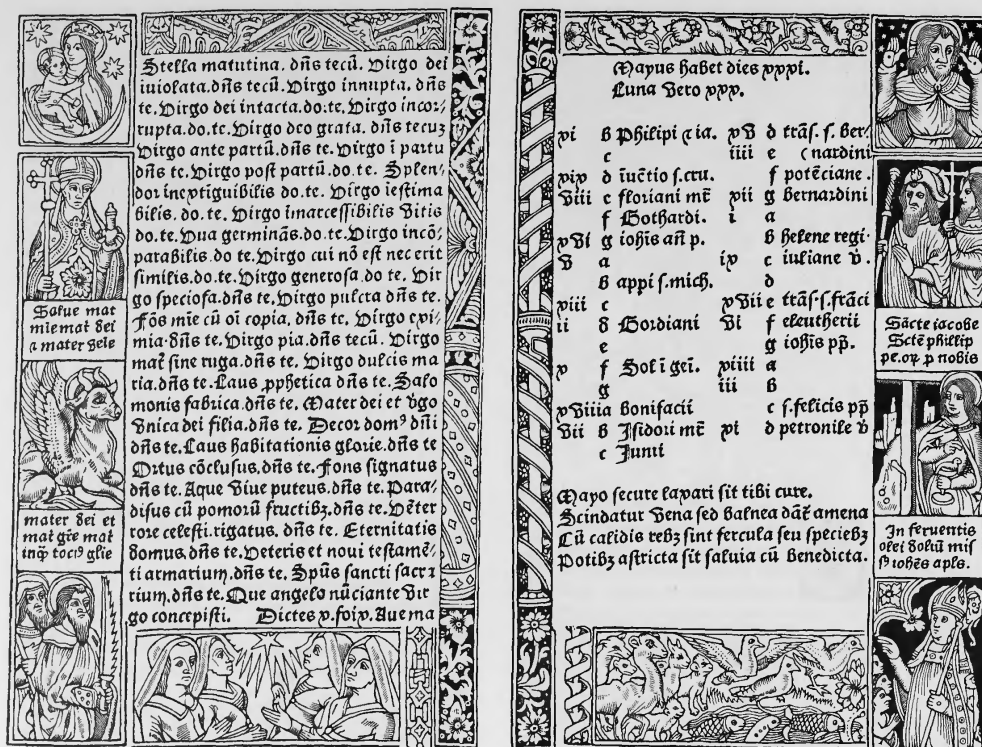 Stella matutina. dñs tecũ. Virgo dei
iuiolata.dñs tecũ. Virgo innupta. dñs
te. Virgo dei intacta.do:te. Virgo incor/
rupta.do.te. Virgo deo grata. dñs tecuz
Virgo ante partũ.dñs te. Virgo ĩ partu
dñs te. Virgo post partũ.do te. Splen/
dor inextiguibilis do.te. Virgo iestima
bilis. do.te. Virgo imarcessibilis vitis
do.te. Vua germinãs.do.te. Virgo incõ/
parabilis.do te. Virgo cui nõ est nec erit
similis.do.te. Virgo generosa.do te. Vir
go speciosa.dñs te. Virgo pulcra dñs te.
Fõs mie cũ oĩ copia. dñs te. Virgo exi/
mia.dñs te. Virgo pia.dñs tecũ. Virgo
mať sine ruga.dñs te. Virgo dulcis ma
ria.dñs te. Laus pphetica dñs te. Salo
monis fabrica.dñs te. Mater dei et vgo
vnica dei filia.dñs te. Decor domꝰ dñi
dñs te. Laus habitationis glorie.dñs te
Ortus cõclusus.dñs te. fons signatus
dñs te. Aque viue puteus.dñs te. Para/
disus cũ pomorũ fructibꝫ.dñs te. Vẽter
rore celesti.rigatus. dñs te. Eternitatis
domus.dñs te. Veteris et noui testamẽ/
ti armarium.dñs te. Spũs sancti sacrꝛ
rium.dñs te. Que angelo nũciante vir
go concepisti. Dictes x.foix. Aue ma
Salue mat
mie mat dei
⁊ mater vele
mater dei et
mat gr̃e mat
inqꝫ tociꝰ glie
Mayus habet dies xxxi.
Luna vero xxx.
xi b Philipi ⁊ ia.
c
xix d iuẽtio s.cru.
viii e floriani mr̃
f Gothardi.
xvi g iohis añ p.
v a
b appi s.mich.
xiii c
ii d Gordiani
e
x f Sol ĩ gei.
g
xviii a Bonifacii
vii b Isidori mr̃
c Junii
xv d trãs. s. ber/
iiii e (nardini
f potẽciane.
xii g bernardini
i a
b helene regi.
ix c iuliane v̄.
d
xvii e trãs.s.frãci
vi f eleutherii
g iohis pp̃.
xiiii a
iii b
c s.felicis pp̃
xi d petronile v̄
Mayo secure laxari sit tibi cure.
Scindatur vena sed balnea dãt̃ amena
Cũ calidis rebꝫ sint fercula seu speciebꝫ
Potibꝫ astricta sit saluia cũ benedicta.
Sãcte iacobe
Sctẽ phillip
pe.oꝝ p nobis
In feruentis
olei doliũ mis
sꝰ iohẽs apls.